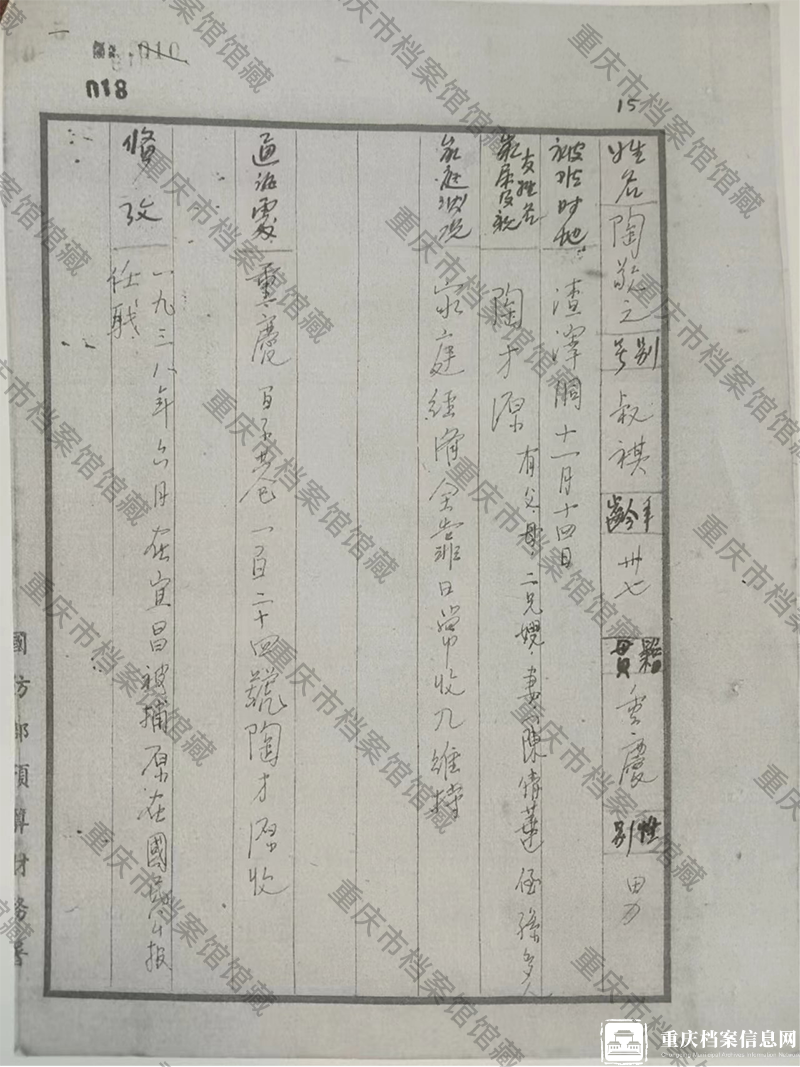 018
15
姓名 陶敬之 别号 叔祺 年龄 卅七 籍貫 重慶 性别 男
被难时地 渣滓洞 十一月十四日
家属及親友姓名 陶才源 有父母 二兄嫂 妻陳倩蓮 侄孫多人
家庭状况 家庭經濟全靠日常收入維持
通訊處 重慶百子巷一百二十四號陶才源收
備攷 一九三八年六月在宜昌被捕原在國民公报
任職
國防部預算財務署
重庆市档案馆馆藏
重庆档案信息网